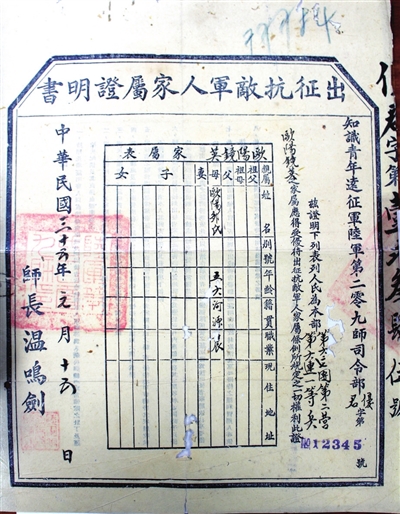 出征抗敵軍人家屬證明書
知識青年遠征軍陸軍第二〇九師司令部
名字第
號
№12345
茲證明下列表列人民為本部第六二五團第二營
第六連一等兵
歐陽鏡英家屬應得受優待出征抗敵軍人家屬條例所規定之一切權利此證
歐陽鏡英家屬表
親屬 祖父 祖母 父 母 妻 子 女
姓名
別號
年齡
籍貫
職業
現住地址
五六 河源 農
中華民國三十五年元月十五日
師長溫鳴劍